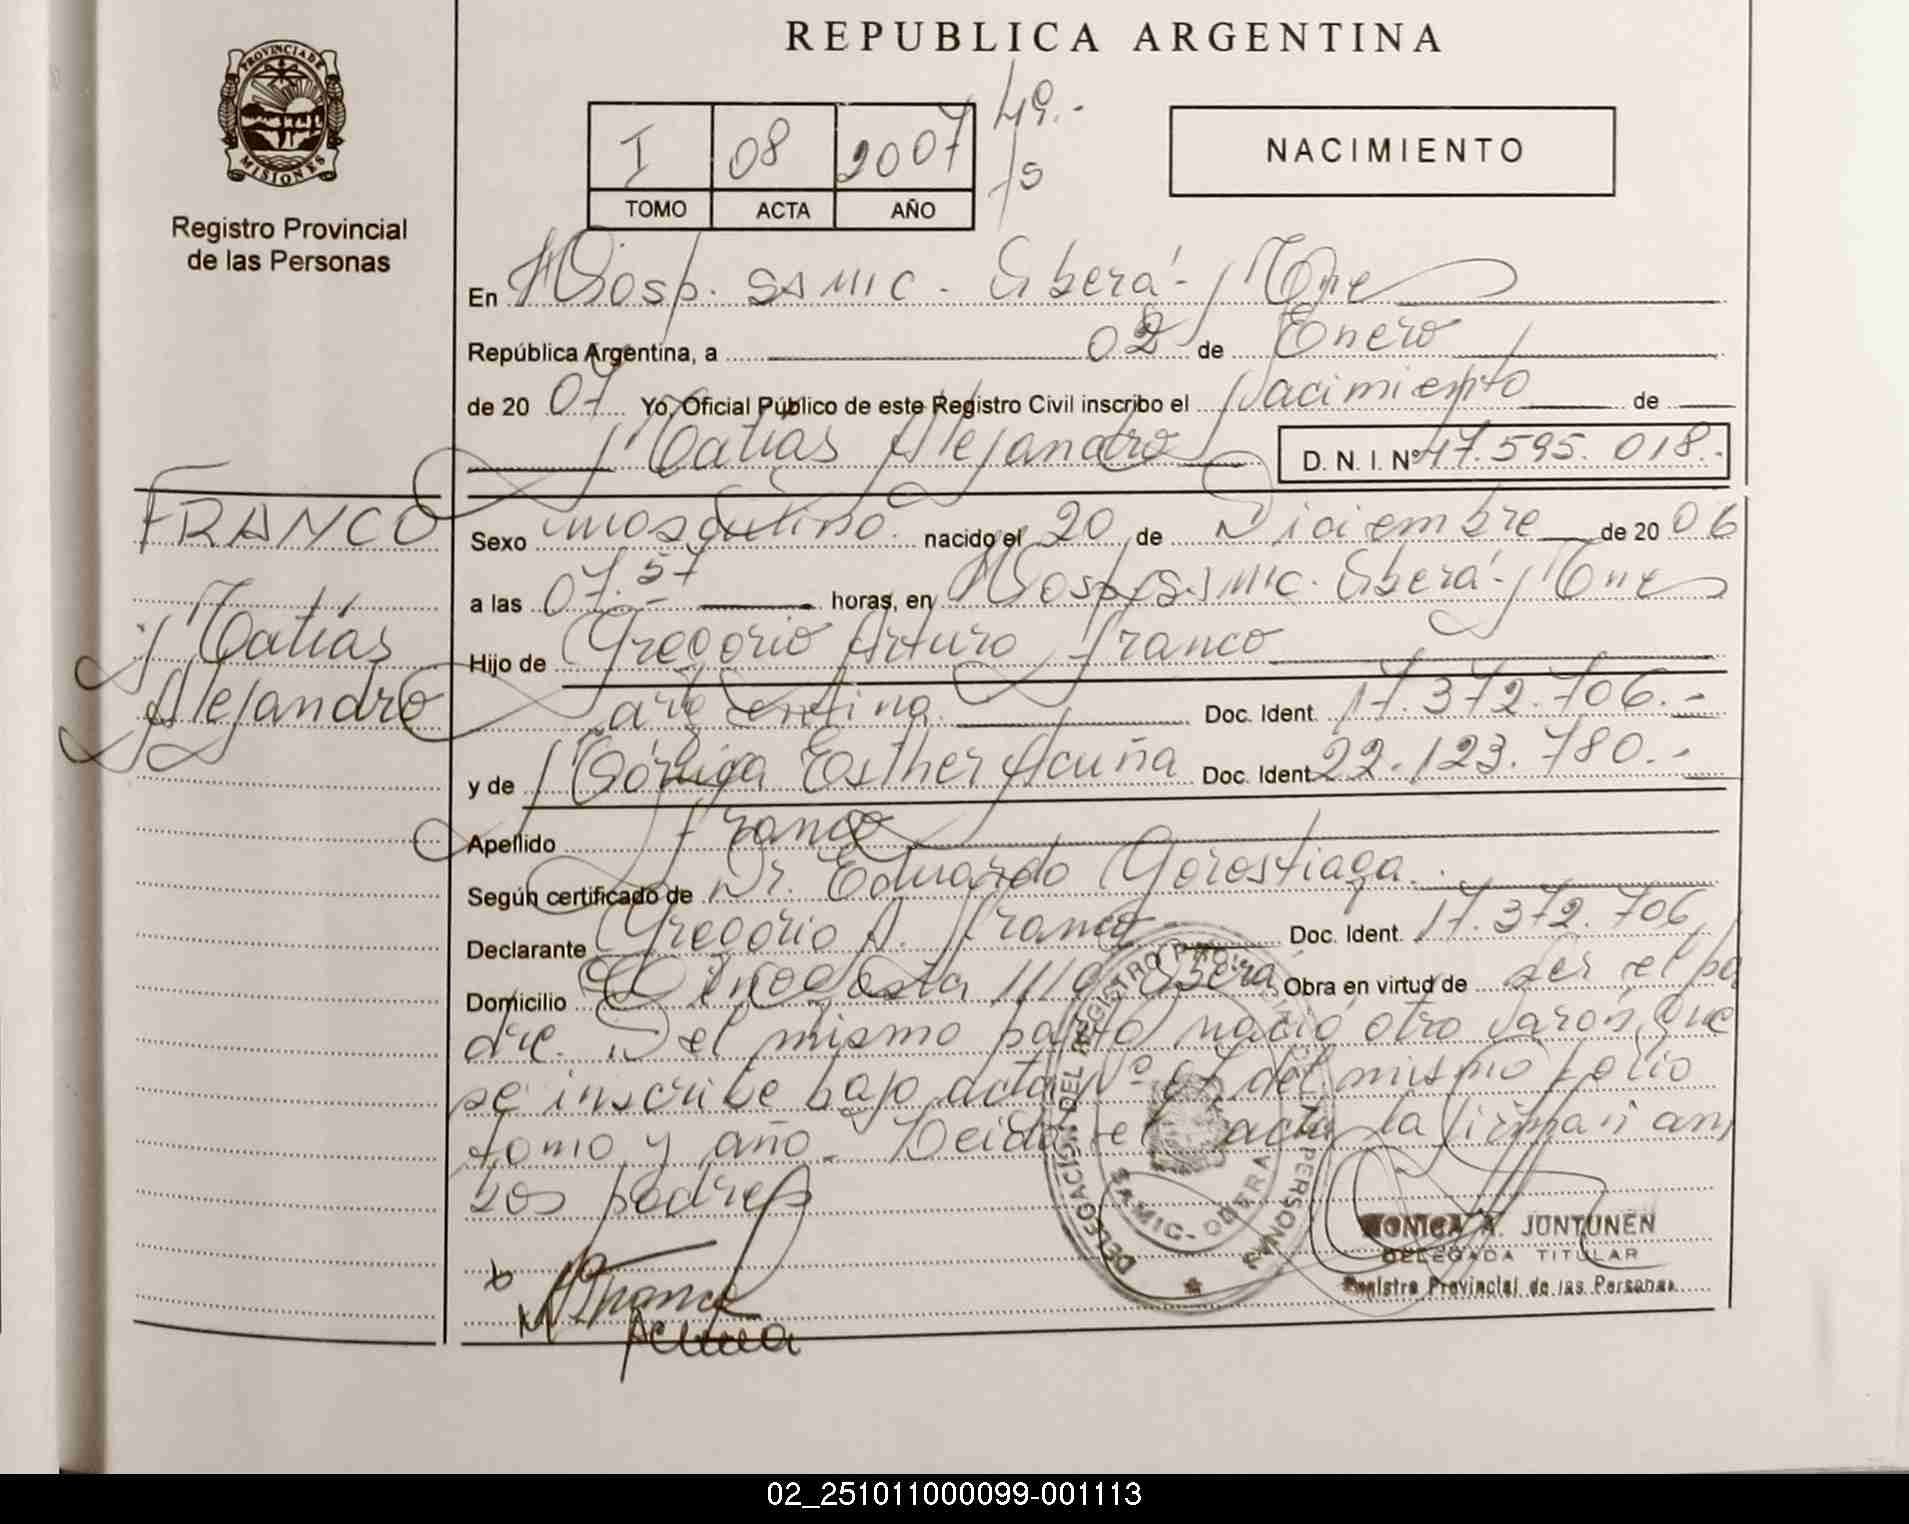 PROVINCIA DE
MISIONES
Registro Provincial
de las Personas
REPUBLICA ARGENTINA
I 08 2007 49.-
TOMO ACTA AÑO fs
NACIMIENTO
En Hosp. SAMIC - Oberá - Mnes
República Argentina, a 02 de Enero
de 20 07 Yo, Oficial Público de este Registro Civil inscribo el Nacimiento de
Matías Alejandro D. N. I. Nº 47.595.018.-
FRANCO
Matías
Alejandro
Sexo masculino nacido el 20 de Diciembre de 20 06
a las 07.57 horas, en Hosp. SAMIC. Oberá - Mnes
Hijo de Gregorio Arturo Franco
argentina Doc. Ident. 17.372.706.-
y de Mónica Esther Acuña Doc. Ident. 22.123.780.-
Apellido Franco
Según certificado de Dr. Eduardo Gorostiaga.
Declarante Gregorio A. Franco Doc. Ident. 17.372.706
Domicilio Oberá Obra en virtud de ser el pa
dre. Del mismo parto nació otro varón que
se inscribe bajo acta Nº 07 del mismo folio
tomo y año. Leida el acta la firman am
bos padres
DELEGACION DEL REGISTRO PROVINCIAL DE LAS PERSONAS
SAMIC - OBERA
MONICA A. JUNTUNEN
DELEGADA TITULAR
Registro Provincial de las Personas
x A Franco
Acuña
02_251011000099-001113